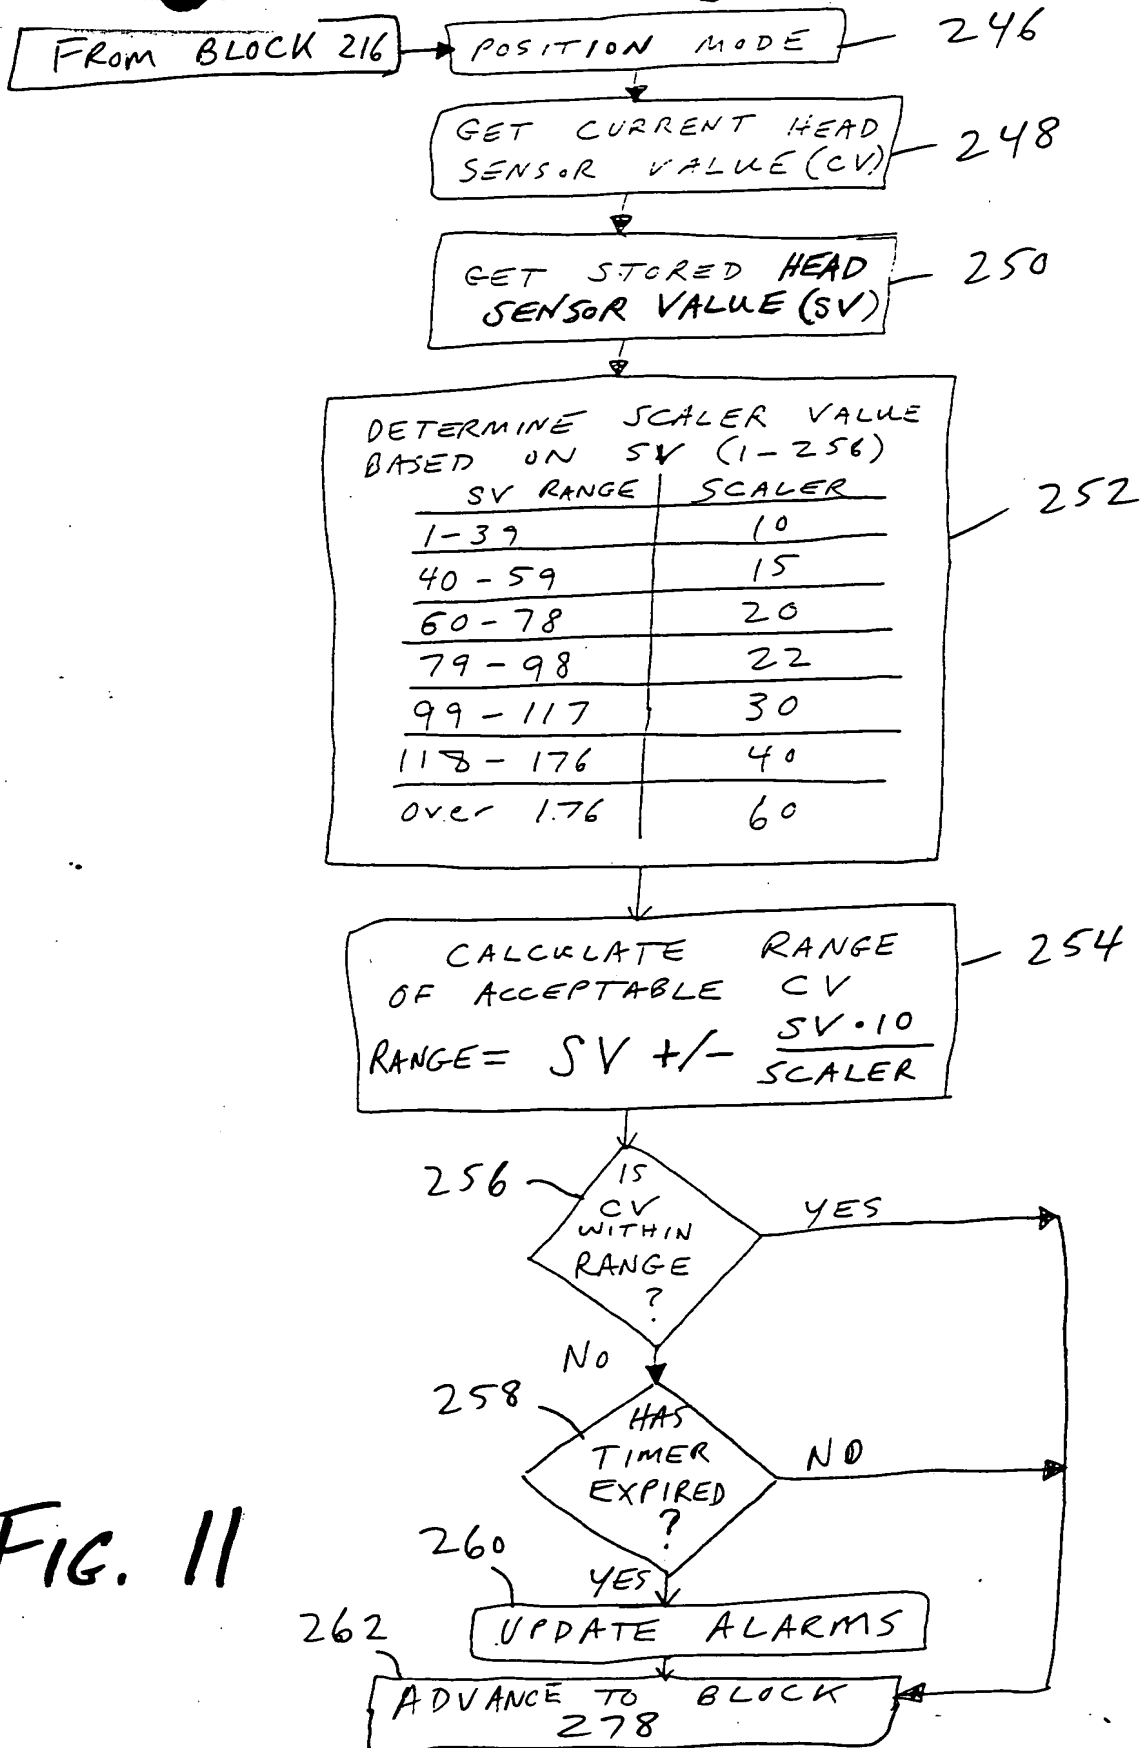 FROM BLOCK 216
POSITION MODE
246
GET CURRENT HEAD
SENSOR VALUE (CV)
248
GET STORED HEAD
SENSOR VALUE (SV)
250
DETERMINE SCALER VALUE
BASED ON SV (1-256)
SV RANGE SCALER
1-39 10
40-59 15
60-78 20
79-98 22
99-117 30
118-176 40
over 176 60
252
CALCULATE RANGE
OF ACCEPTABLE CV
RANGE= SV +/- SV·10
SCALER
254
256
IS
CV
WITHIN
RANGE
?
YES
NO
258
HAS
TIMER
EXPIRED
?
NO
YES
260
UPDATE ALARMS
262
ADVANCE TO BLOCK
278
FIG. 11